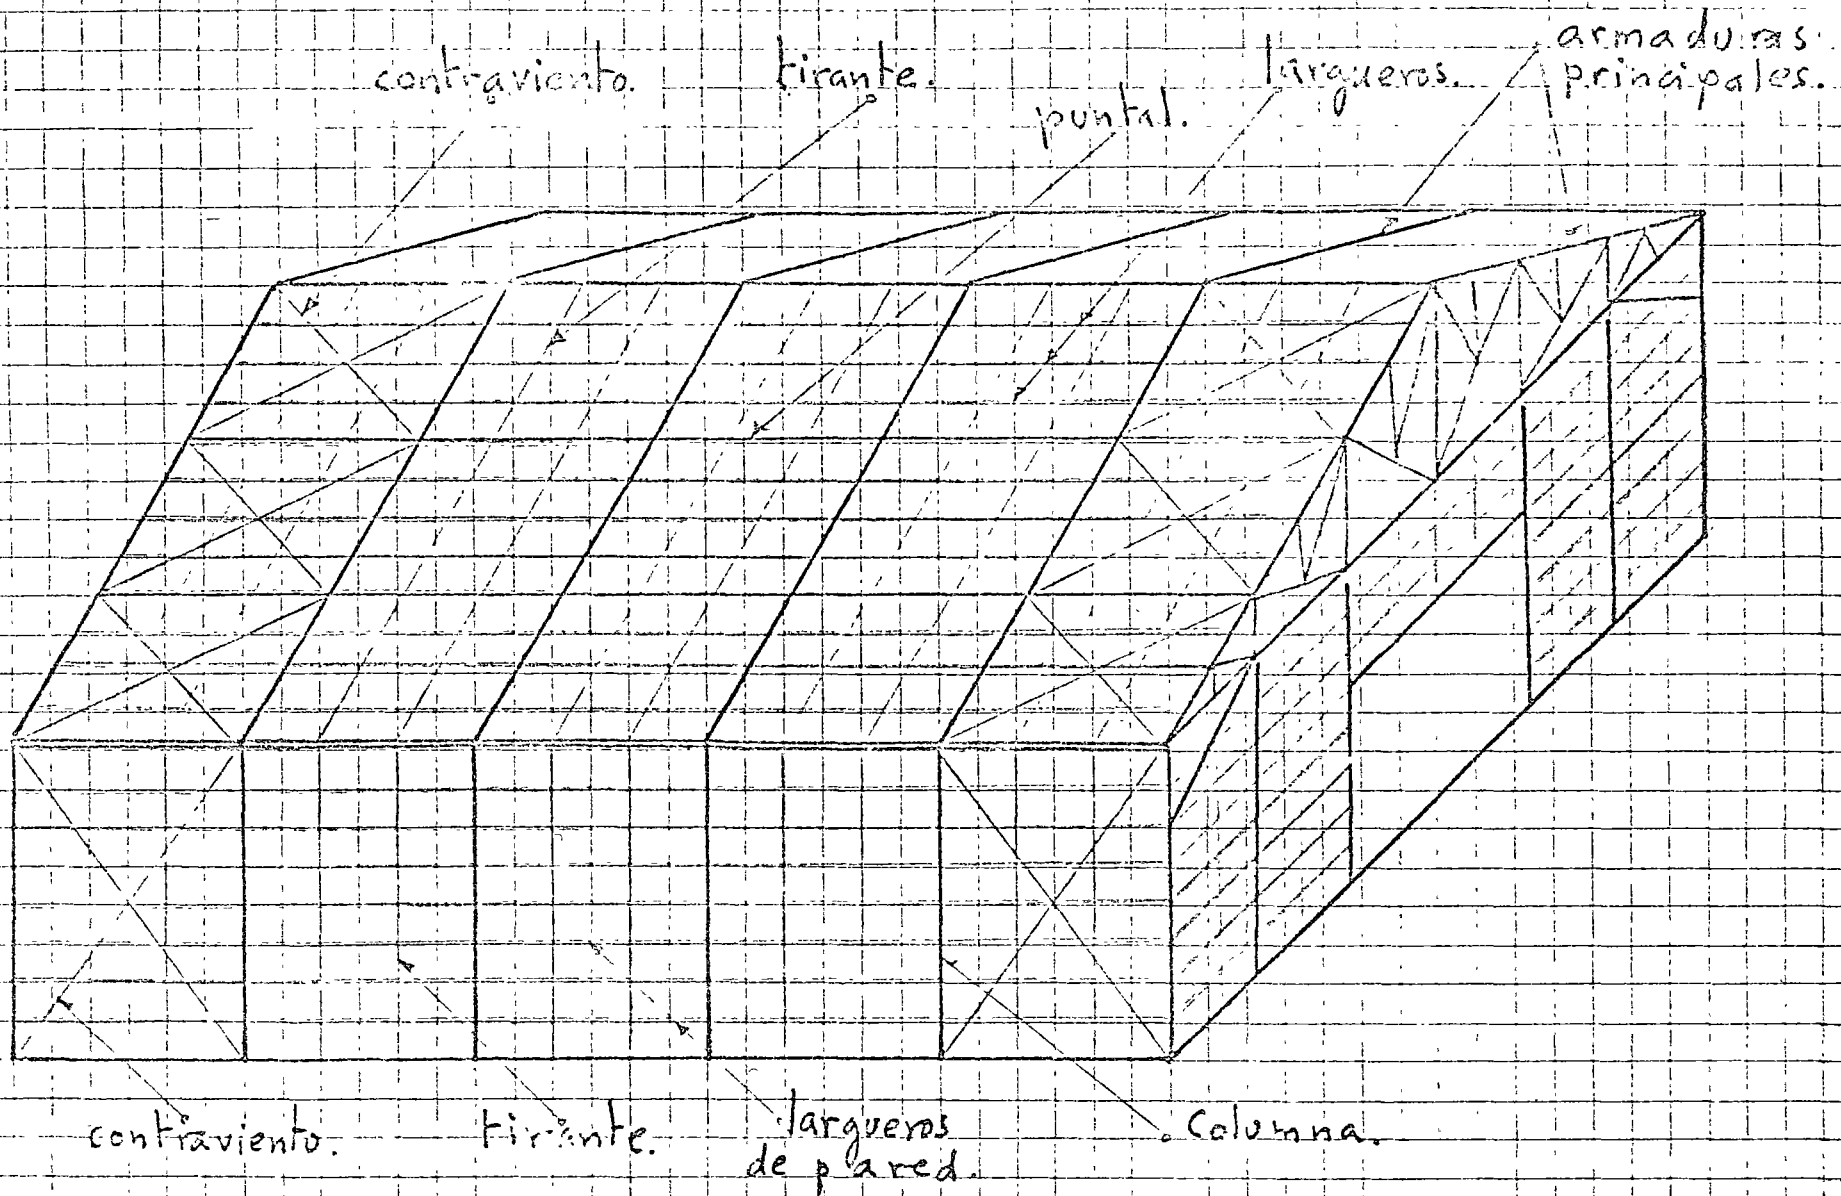 contraviento.
tirante.
puntal.
largueros.
armaduras
principales.
contraviento.
tirante.
largueros
de pared.
Columna.